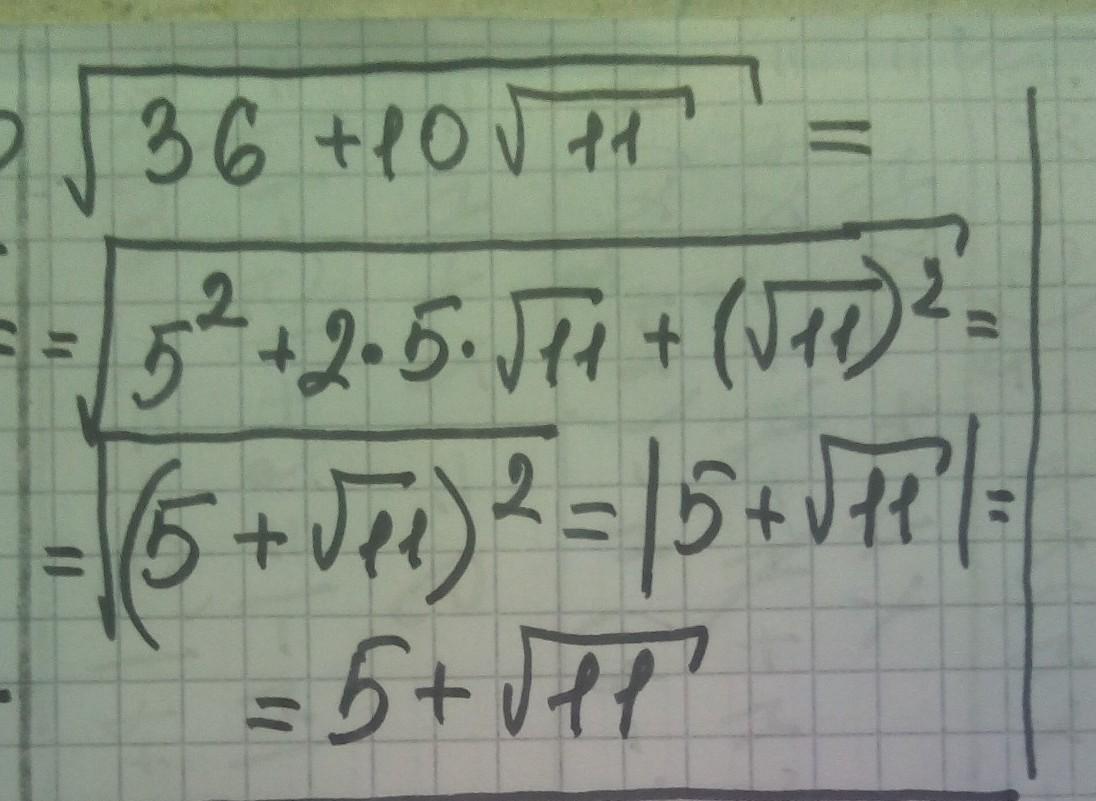 √(36 + 10√11) =
= √(5² + 2·5·√11 + (√11)²) =
= √(5 + √11)² = |5 + √11| =
= 5 + √11